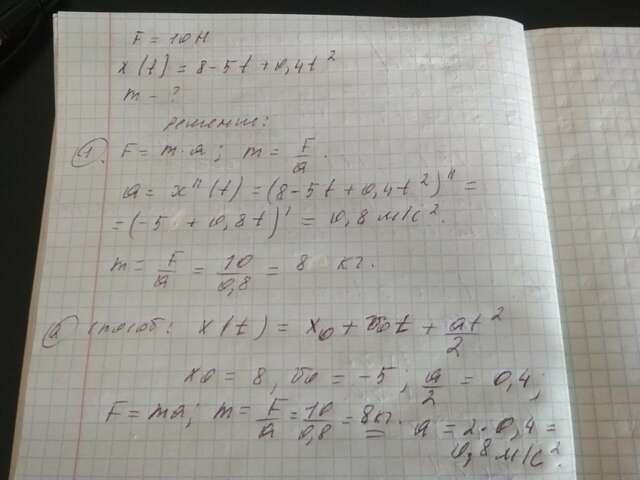 F = 10 Н
x(t) = 8 - 5t + 0,4t²
m - ?
решение:
1. F = m·a; m = F/a.
a = x"(t) = (8 - 5t + 0,4t²)" =
= (-5 + 0,8t)' = 0,8 м/с².
m = F/a = 10/0,8 = 8 кг.
2 способ: x(t) = x₀ + v₀t + at²/2
x₀ = 8, v₀ = -5; a/2 = 0,4;
F = ma; m = F/a = 10/0,8 = 8 кг. a = 2·0,4 =
0,8 м/с².